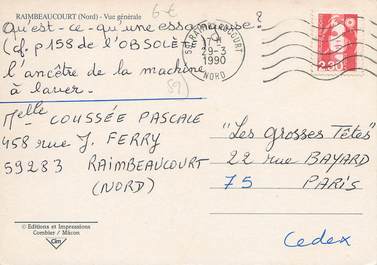 RAIMBEAUCOURT (Nord) - Vue générale
6€
Qu'est-ce-qu'une essoreuse?
(cf. p 158 de l'OBSOLÈTE)
l'ancêtre de la machine
à laver.
89)
Melle COUSSÉE PASCALE
458 rue J. FERRY
59283 RAIMBEAUCOURT
(NORD)
© Editions et Impressions
Combier / Mâcon
Cim
59 RAIMBEAUCOURT
17 H
29-3
1990
NORD
2,30
"Les Grosses Têtes"
22 rue BAYARD
75 PARIS
Cedex